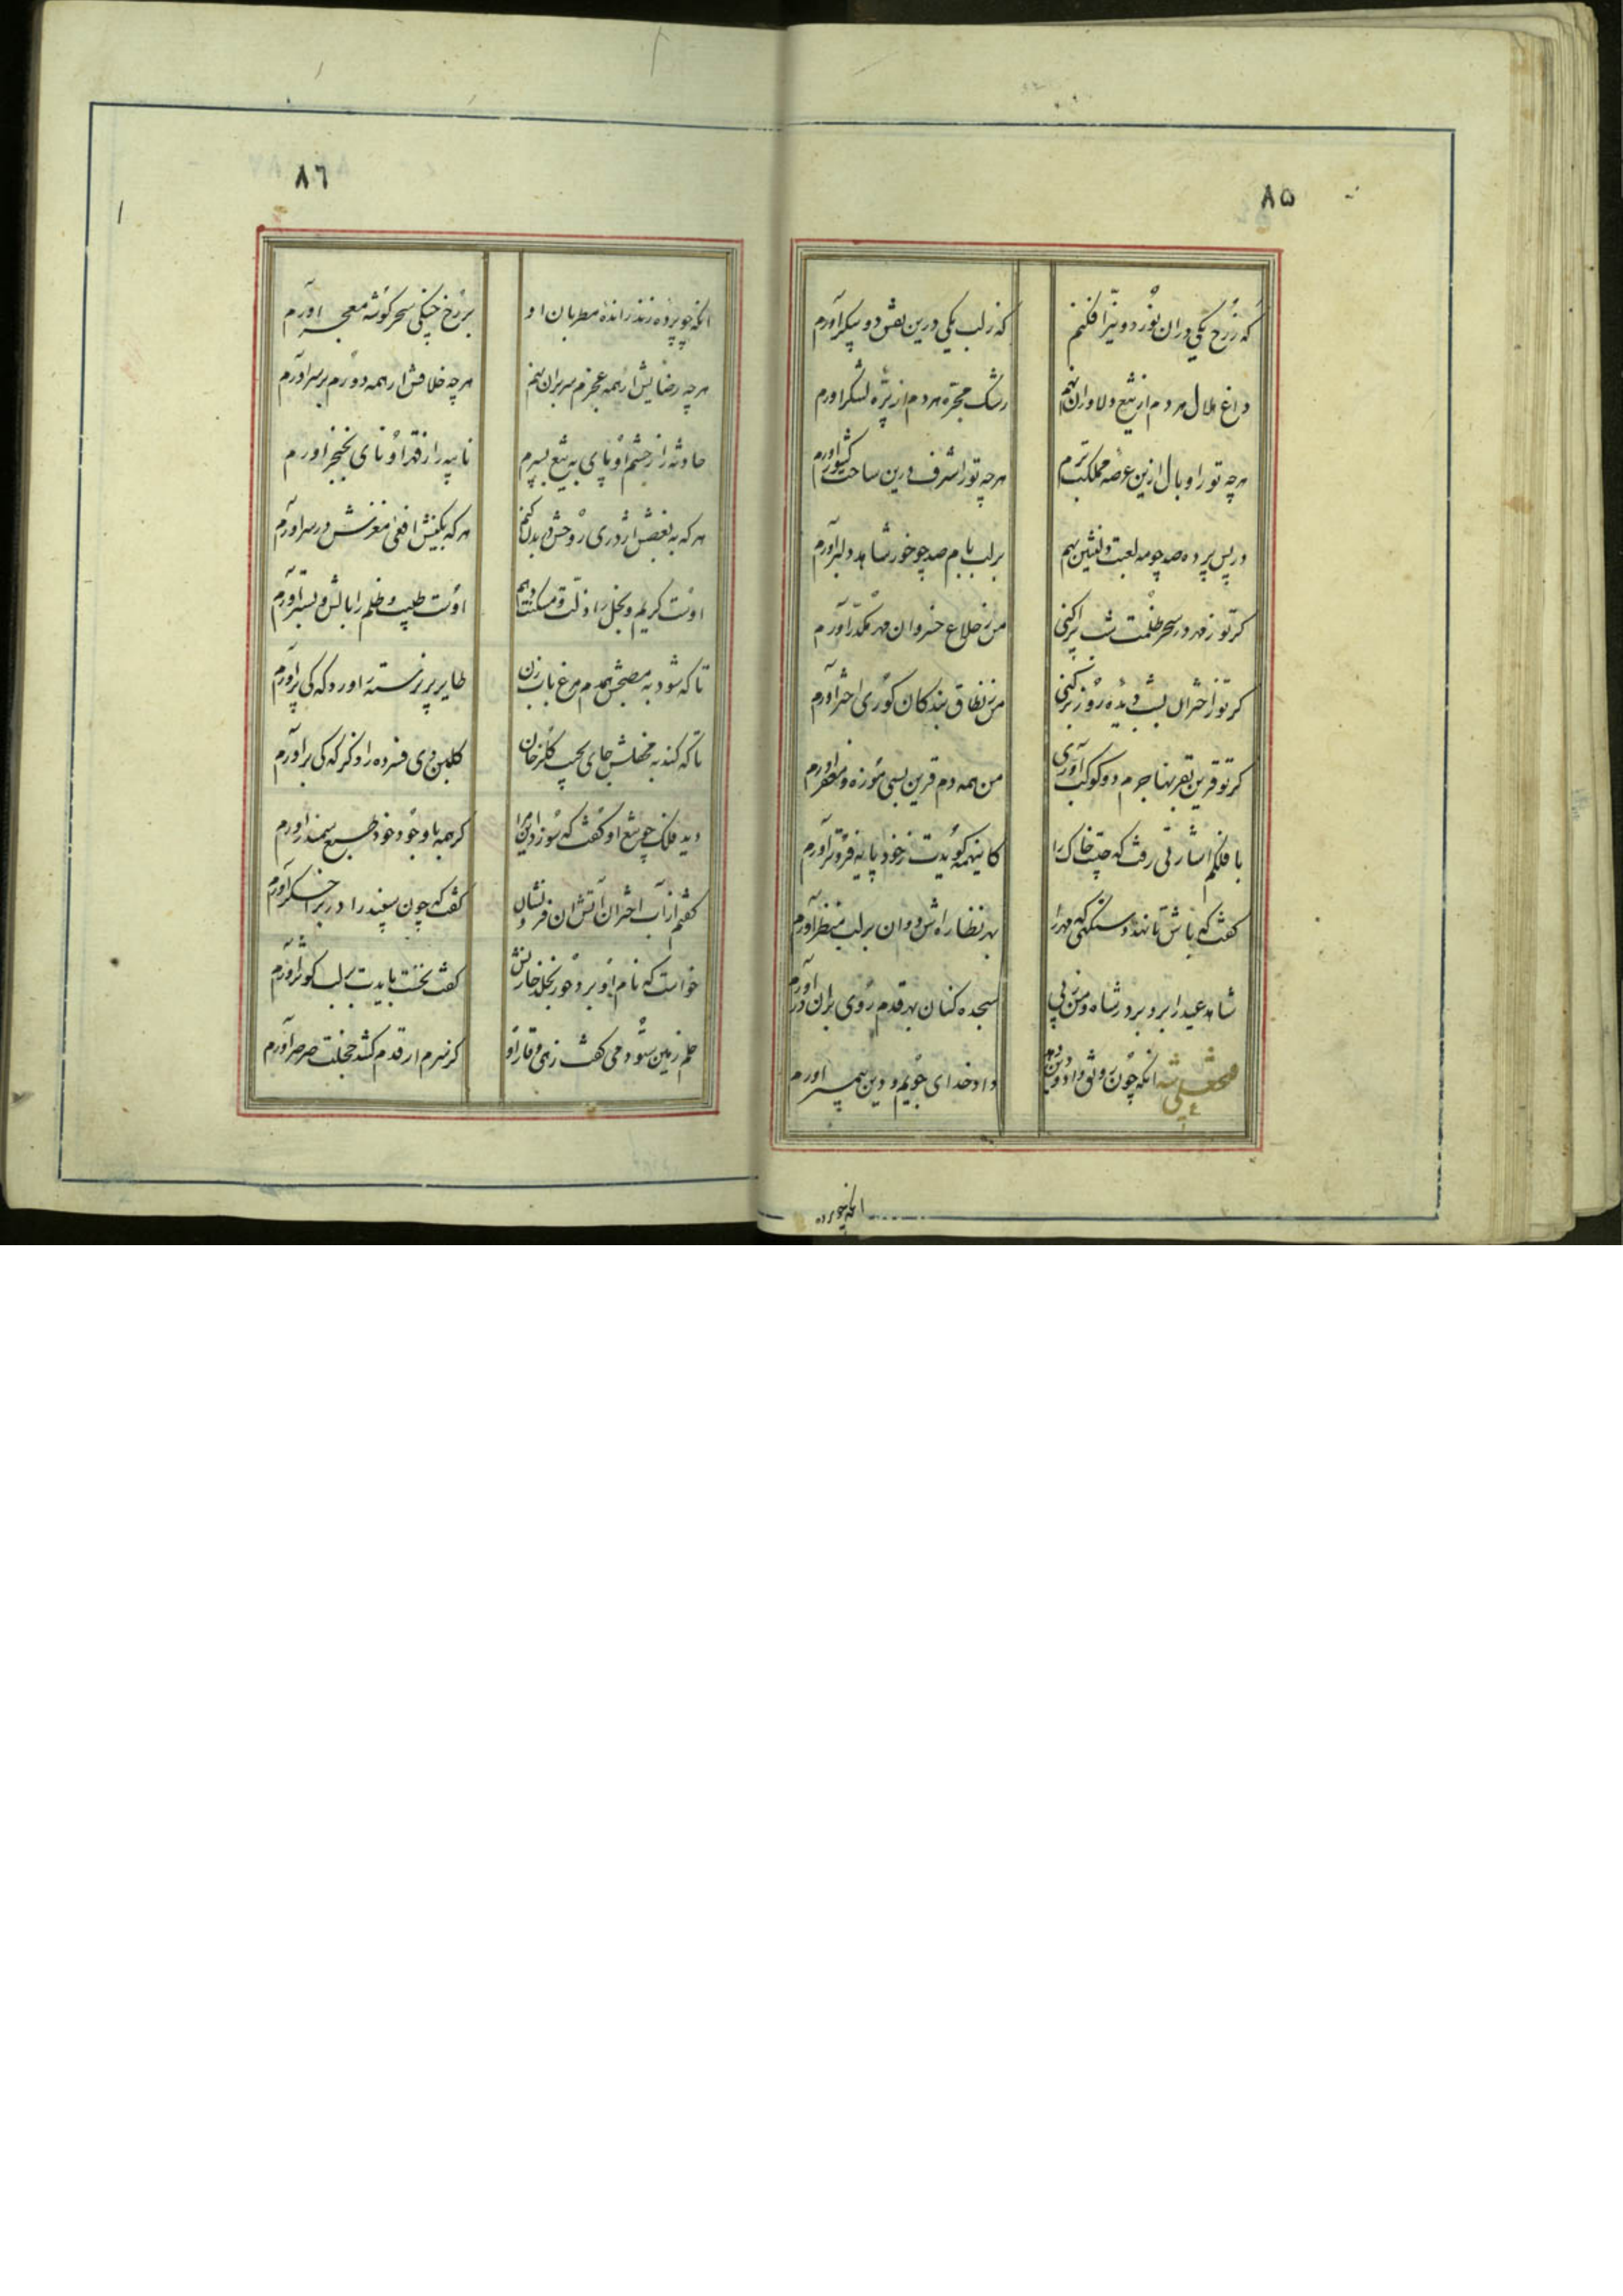 ۸۵
که ز رخ یکی در آن نور دو نیر افکنم
که ز لب یکی درین نقش دو پیکر آورم
داغ هلال هر دم از تیغ دلاوران نهم
رشک مجره هر دم از نیزه لشکر آورم
هر چه تو را وبال ازین عرصه مملکت برم
هر چه تو را شرف درین ساحت کشور آورم
در پس پرده صد چو مه لعبت دلنشین نهم
بر لب بام صد چو خور شاهد دلبر آورم
گر تو ز مهر در سحر ظلمت شب پراکنی
من ز خلاع خسروان مهر مکدر آورم
گر تو ز اختران بشب دیده روز برکنی
من ز نطاق بندگان کوری اختر آورم
گر تو قرین بقربها جرم دو کوکب آوری
من همه دم قرین بسی موزه و مغفر آورم
با فلکم اشارتی رفت که چیست خاک را
کاینهمه گویدت ز خود پایه فروتر آورم
گفت که باش تا نهد وسنگهی مهر را
بهر نظاره اش دوان بر لب منظر آورم
شاهد عید را برو بر در شاه و من ز پی
سجده کنان بهر قدم روی بران در آورم
فتحعلی شه آنکه چون رونق داد و دین دهم
داد خدای جویم و دین پیمبر آورم
آنکه چو پرده
۸٦
آنکه چو پرده زنند زانده مطربان او
بر رخ چنگی سحر گوشه معجر آورم
هر چه رضایش از همه عجزم سر بران نهم
هر چه خلافش ار همه دورم بر سر آورم
حادثه را ز خشم او پای به تیغ بسپرم
نایبه را ز قهر او نای بخنجر آورم
هر که به بغضش اژدری روحش در بدن کنم
هر که بکینش افعی مغزش در سر آورم
اوست کریم و بخل را ذلت و مسکنت دهم
اوست طبیب و ظلم را بالش و بستر آورم
تا که شود به مطبخش همدم مرغ بابزن
طایر پر نرسته را ورد که کی پر آورم
تا که کند به محفلش جای بجیب گلرخان
گلبن دی فسرده را ذکر که کی بر آورم
دید فلک چو تیغ او گفت که سوزد این مرا
گر همه با وجود خود طبع سمندر آورم
گفتم از آب اختران آتش آن فرو نشان
گفت که چون سپند را در بر اخگر آورم
خواست که نام او برد حور بخلد خازنش
گفت نخست بایدت بر لب کوثر آورم
حلم زمین ستود می گفت زهی وقار او